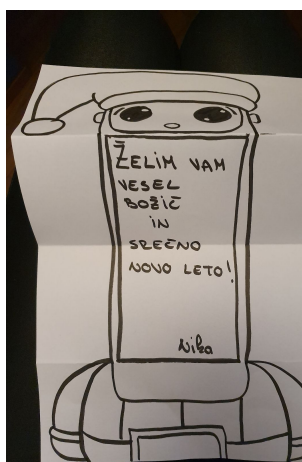 ŽELIM VAM
VESEL
BOŽIČ
IN
SREČNO
NOVO LETO!
Nika